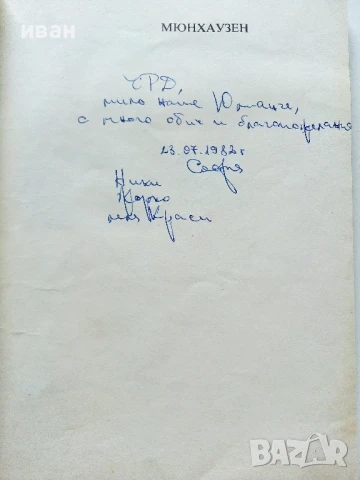 иван
МЮНХАУЗЕН
ЧРД,
мило наше
с много обич и благопожелания
23.07.1982 г
София
Ники
Жоро
леля Краси
BAZAR
.bg